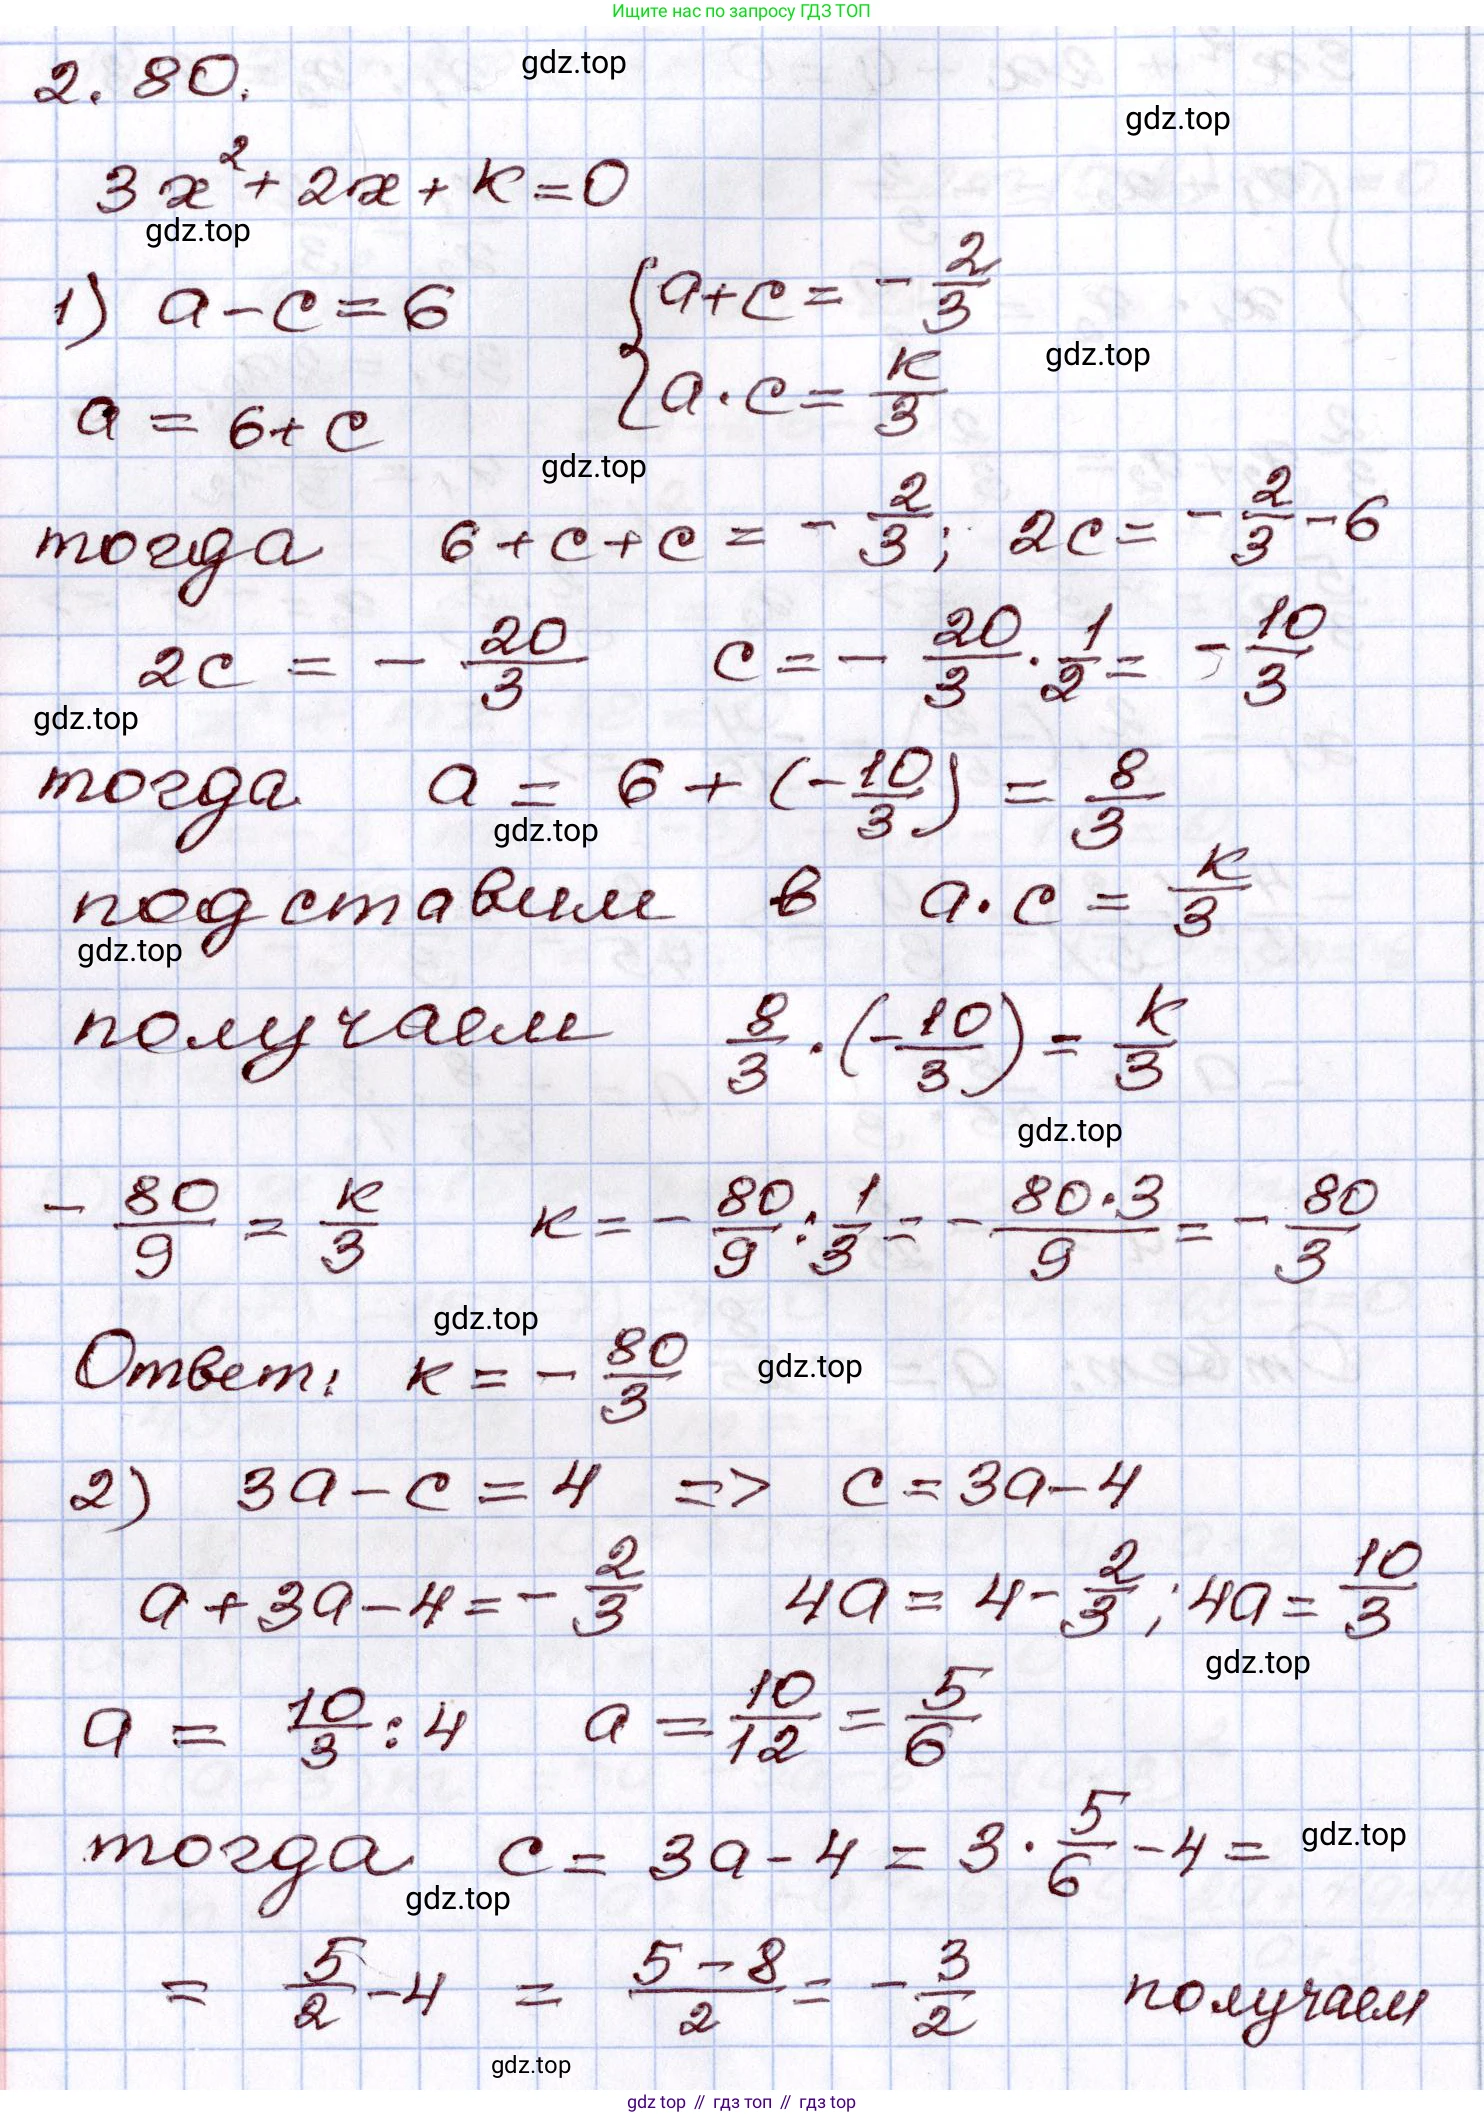 Ищите нас по запросу ГДЗ ТОП
2.80.
gdz.top
gdz.top
3x² + 2x + к = 0
gdz.top
1) a - c = 6 { a + c = - 2/3
gdz.top
a = 6 + c { a · c = к/3
gdz.top
тогда 6 + c + c = - 2/3; 2c = - 2/3 - 6
2c = - 20/3 c = - 20/3 · 1/2 = - 10/3
gdz.top
тогда a = 6 + (- 10/3) = 8/3
gdz.top
подставим в a · c = к/3
gdz.top
получаем 8/3 · (- 10/3) = к/3
gdz.top
- 80/9 = к/3 к = - 80/9 : 1/3 = - 80·3/9 = - 80/3
gdz.top
Ответ: к = - 80/3
gdz.top
2) 3a - c = 4 => c = 3a - 4
a + 3a - 4 = - 2/3 4a = 4 - 2/3; 4a = 10/3
gdz.top
a = 10/3 : 4 a = 10/12 = 5/6
тогда c = 3a - 4 = 3 · 5/6 - 4 =
gdz.top
gdz.top
= 5/2 - 4 = 5 - 8/2 = - 3/2 получаем
gdz.top
gdz top // гдз топ // гдз top